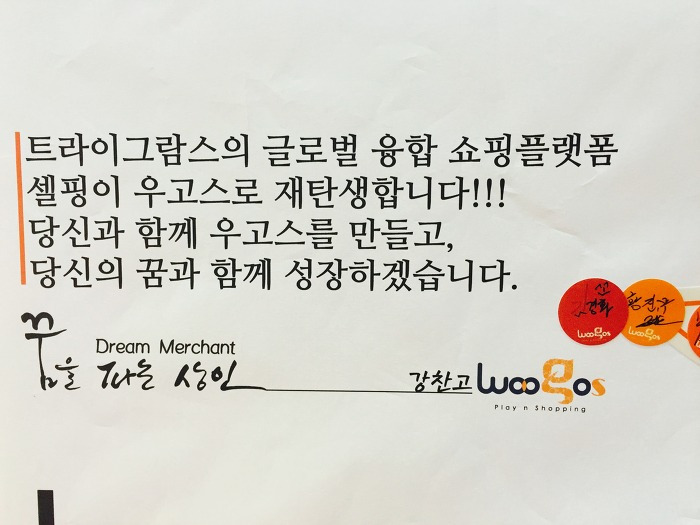 트라이그람스의 글로벌 융합 쇼핑플랫폼
셀핑이 우고스로 재탄생합니다!!!
당신과 함께 우고스를 만들고,
당신의 꿈과 함께 성장하겠습니다.
Dream Merchant
꿈을 파는 상인
강찬고 woogos
Play n Shopping
woogos
woogos